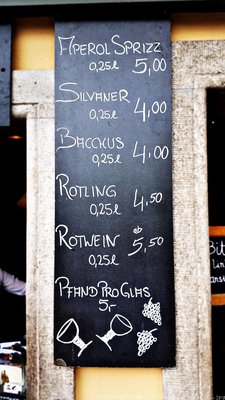 APEROL SPRIZZ
0,25l 5,00
SILVANER
0,25l 4,00
BACCHUS
0,25l 4,00
ROTLING
0,25l 4,50
ROTWEIN ab
0,25l 5,50
PFAND PRO GLAS
5,-
Bit